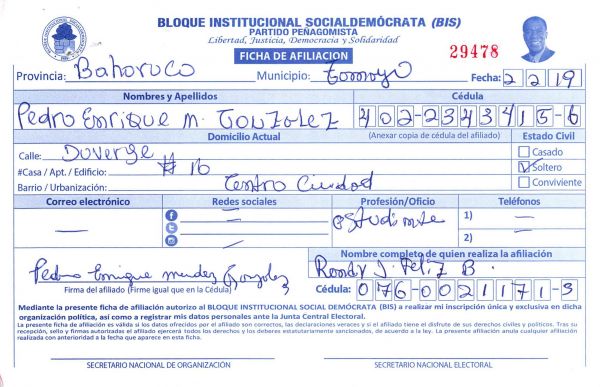 BLOQUE INSTITUCIONAL SOCIALDEMÓCRATA (BIS)
PARTIDO PEÑAGOMISTA
Libertad, Justicia, Democracia y Solidaridad
FICHA DE AFILIACION
29478
Provincia: Bahoruco Municipio: Tamayo Fecha: 2 2 19
Nombres y Apellidos Cédula
Pedro Enrique M. Gonzalez 402-2343415-6
Domicilio Actual (Anexar copia de cédula del afiliado) Estado Civil
Calle: Duverge Casado
#Casa / Apt. / Edificio: # 16 Soltero
Barrio / Urbanización: Centro Ciudad Conviviente
Correo electrónico Redes sociales Profesión/Oficio Teléfonos
estudiante 1)
2)
Nombre completo de quien realiza la afiliación
Pedro Enrique mendez Gonzalez Ronny J. Feliz B.
Firma del afiliado (Firme igual que en la Cédula) Cédula: 076-0021171-3
Mediante la presente ficha de afiliación autorizo al BLOQUE INSTITUCIONAL SOCIAL DEMÓCRATA (BIS) a realizar mi inscripción única y exclusiva en dicha
organización política, así como a registrar mis datos personales ante la Junta Central Electoral.
La presente ficha de afiliación es válida si los datos ofrecidos por el afiliado son correctos, las declaraciones veraces y si el afiliado tiene el disfrute de sus derechos civiles y políticos. Tras su
recepción, sello y firmas autorizadas el afiliado ejercerá todos los derechos y los deberes estatutariamente sancionados, de acuerdo a la ley. La presente afiliación anula cualquier afiliación
realizada con anterioridad a la fecha que aparece en esta ficha.
SECRETARIO NACIONAL DE ORGANIZACIÓN SECRETARIO NACIONAL ELECTORAL